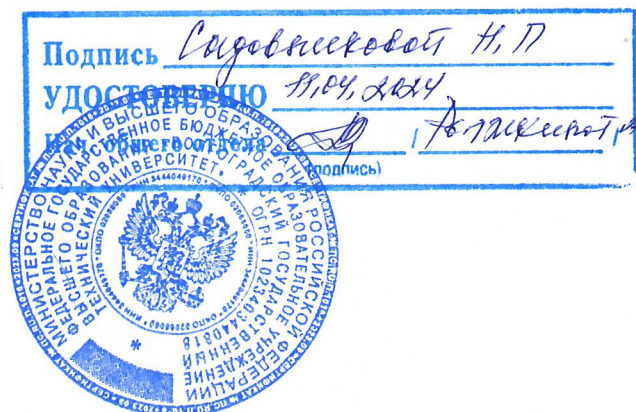 Подпись Садовниковой Н.П
УДОСТОВЕРЯЮ 11.04.2024
Нач. общего отдела
(подпись)
МИНИСТЕРСТВО НАУКИ И ВЫСШЕГО ОБРАЗОВАНИЯ РОССИЙСКОЙ ФЕДЕРАЦИИ
ФЕДЕРАЛЬНОЕ ГОСУДАРСТВЕННОЕ БЮДЖЕТНОЕ ОБРАЗОВАТЕЛЬНОЕ УЧРЕЖДЕНИЕ
ВЫСШЕГО ОБРАЗОВАНИЯ «ВОЛГОГРАДСКИЙ ГОСУДАРСТВЕННЫЙ
ТЕХНИЧЕСКИЙ УНИВЕРСИТЕТ» * ОГРН 1023403440818
ИНН 3444049170 * ОКПО 02068060